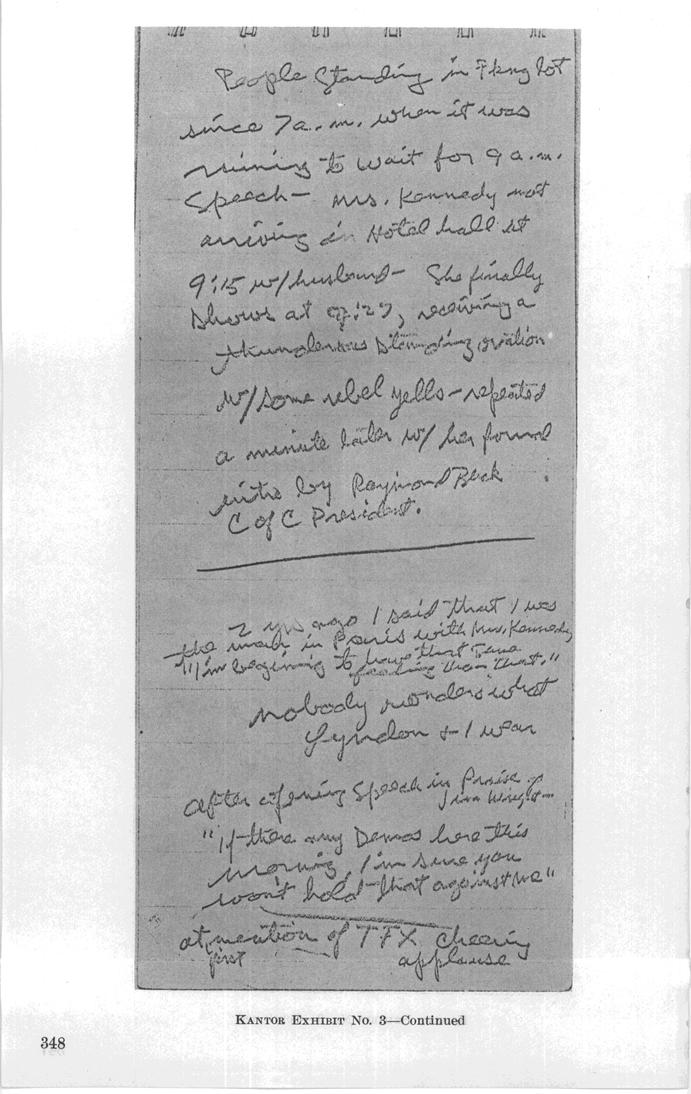 People Standing in Pkng lot
since 7 a.m. when it was
raining to wait for 9 a.m.
Speech - Mrs. Kennedy not
arriving in Hotel hall at
9:15 w/husband - She finally
shows at 9:27, receiving a
thunderous standing ovation
w/some rebel yells - repeated
a minute later w/ her formal
intro by Raymond Buck
C of C President.
2 yrs ago I said that I was
the man in Paris with Mrs. Kennedy
"I'm beginning to have that same
feeling than that."
nobody wonders what
Lyndon & I wear
After opening Speech in Praise of
Jim Wright -
"If there any Demos here this
morning, I'm sure you
won't hold that against me"
at mention of TFX cheering
first applause
KANTOR EXHIBIT No. 3—Continued
348